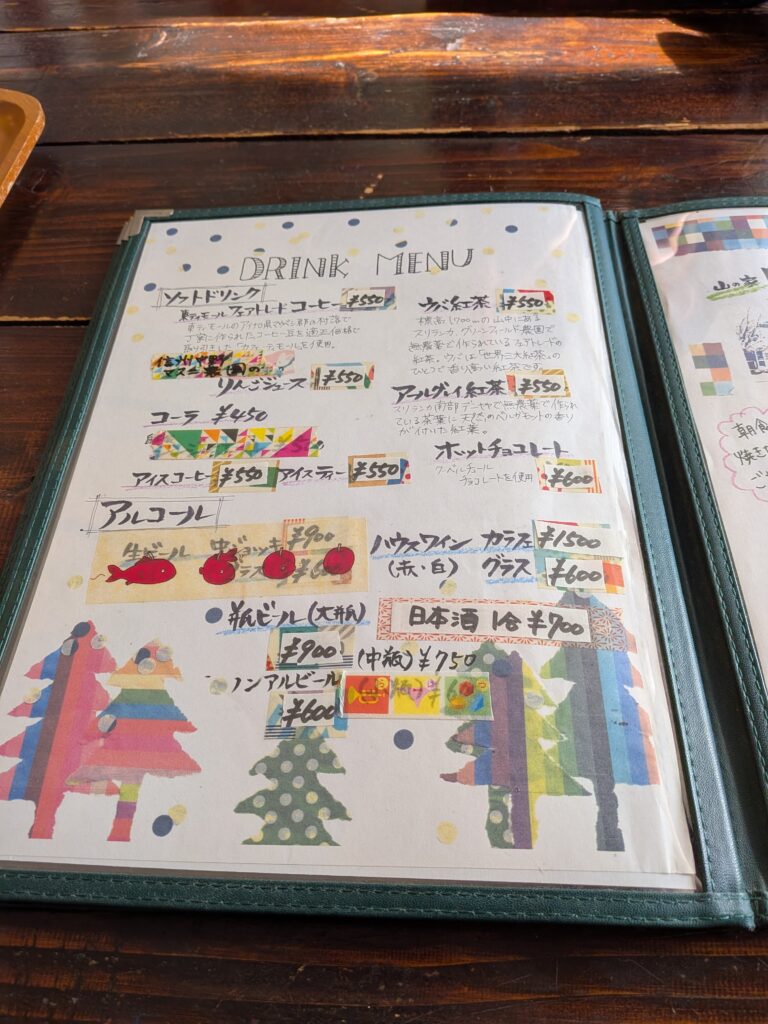 DRINK MENU
ソフトドリンク
東ティモールフェアトレードコーヒー ¥550
東ティモールのアイナロ県マウベシ郡の村落で
丁寧に作られたコーヒー豆を適正価格で
取り引きしたフカティーモールを使用。
信州中野
マスニ農園の
りんごジュース ¥550
コーラ ¥450
アイスコーヒー ¥550 アイスティー ¥550
ウバ紅茶 ¥550
標高1,700mの山中にある
スリランカ、グリーンフィールド農園で
無農薬で作られているフェアトレードの
紅茶。ウバは「世界三大紅茶」の
ひとつで香り高い紅茶です。
アールグレイ紅茶 ¥550
スリランカ南部デニヤヤで無農薬で作られ
ている茶葉に天然のベルガモットの香り
が付いた紅茶。
ホットチョコレート
クーベルチュール
チョコレートを使用 ¥600
アルコール
生ビール 中ジョッキ ¥900
グラス ¥600
瓶ビール(大瓶)
¥900
(中瓶) ¥750
ノンアルビール
¥600
ハウスワイン ガラフェ ¥1500
(赤・白) グラス ¥600
日本酒 1合 ¥700
山の家
朝食
焼き